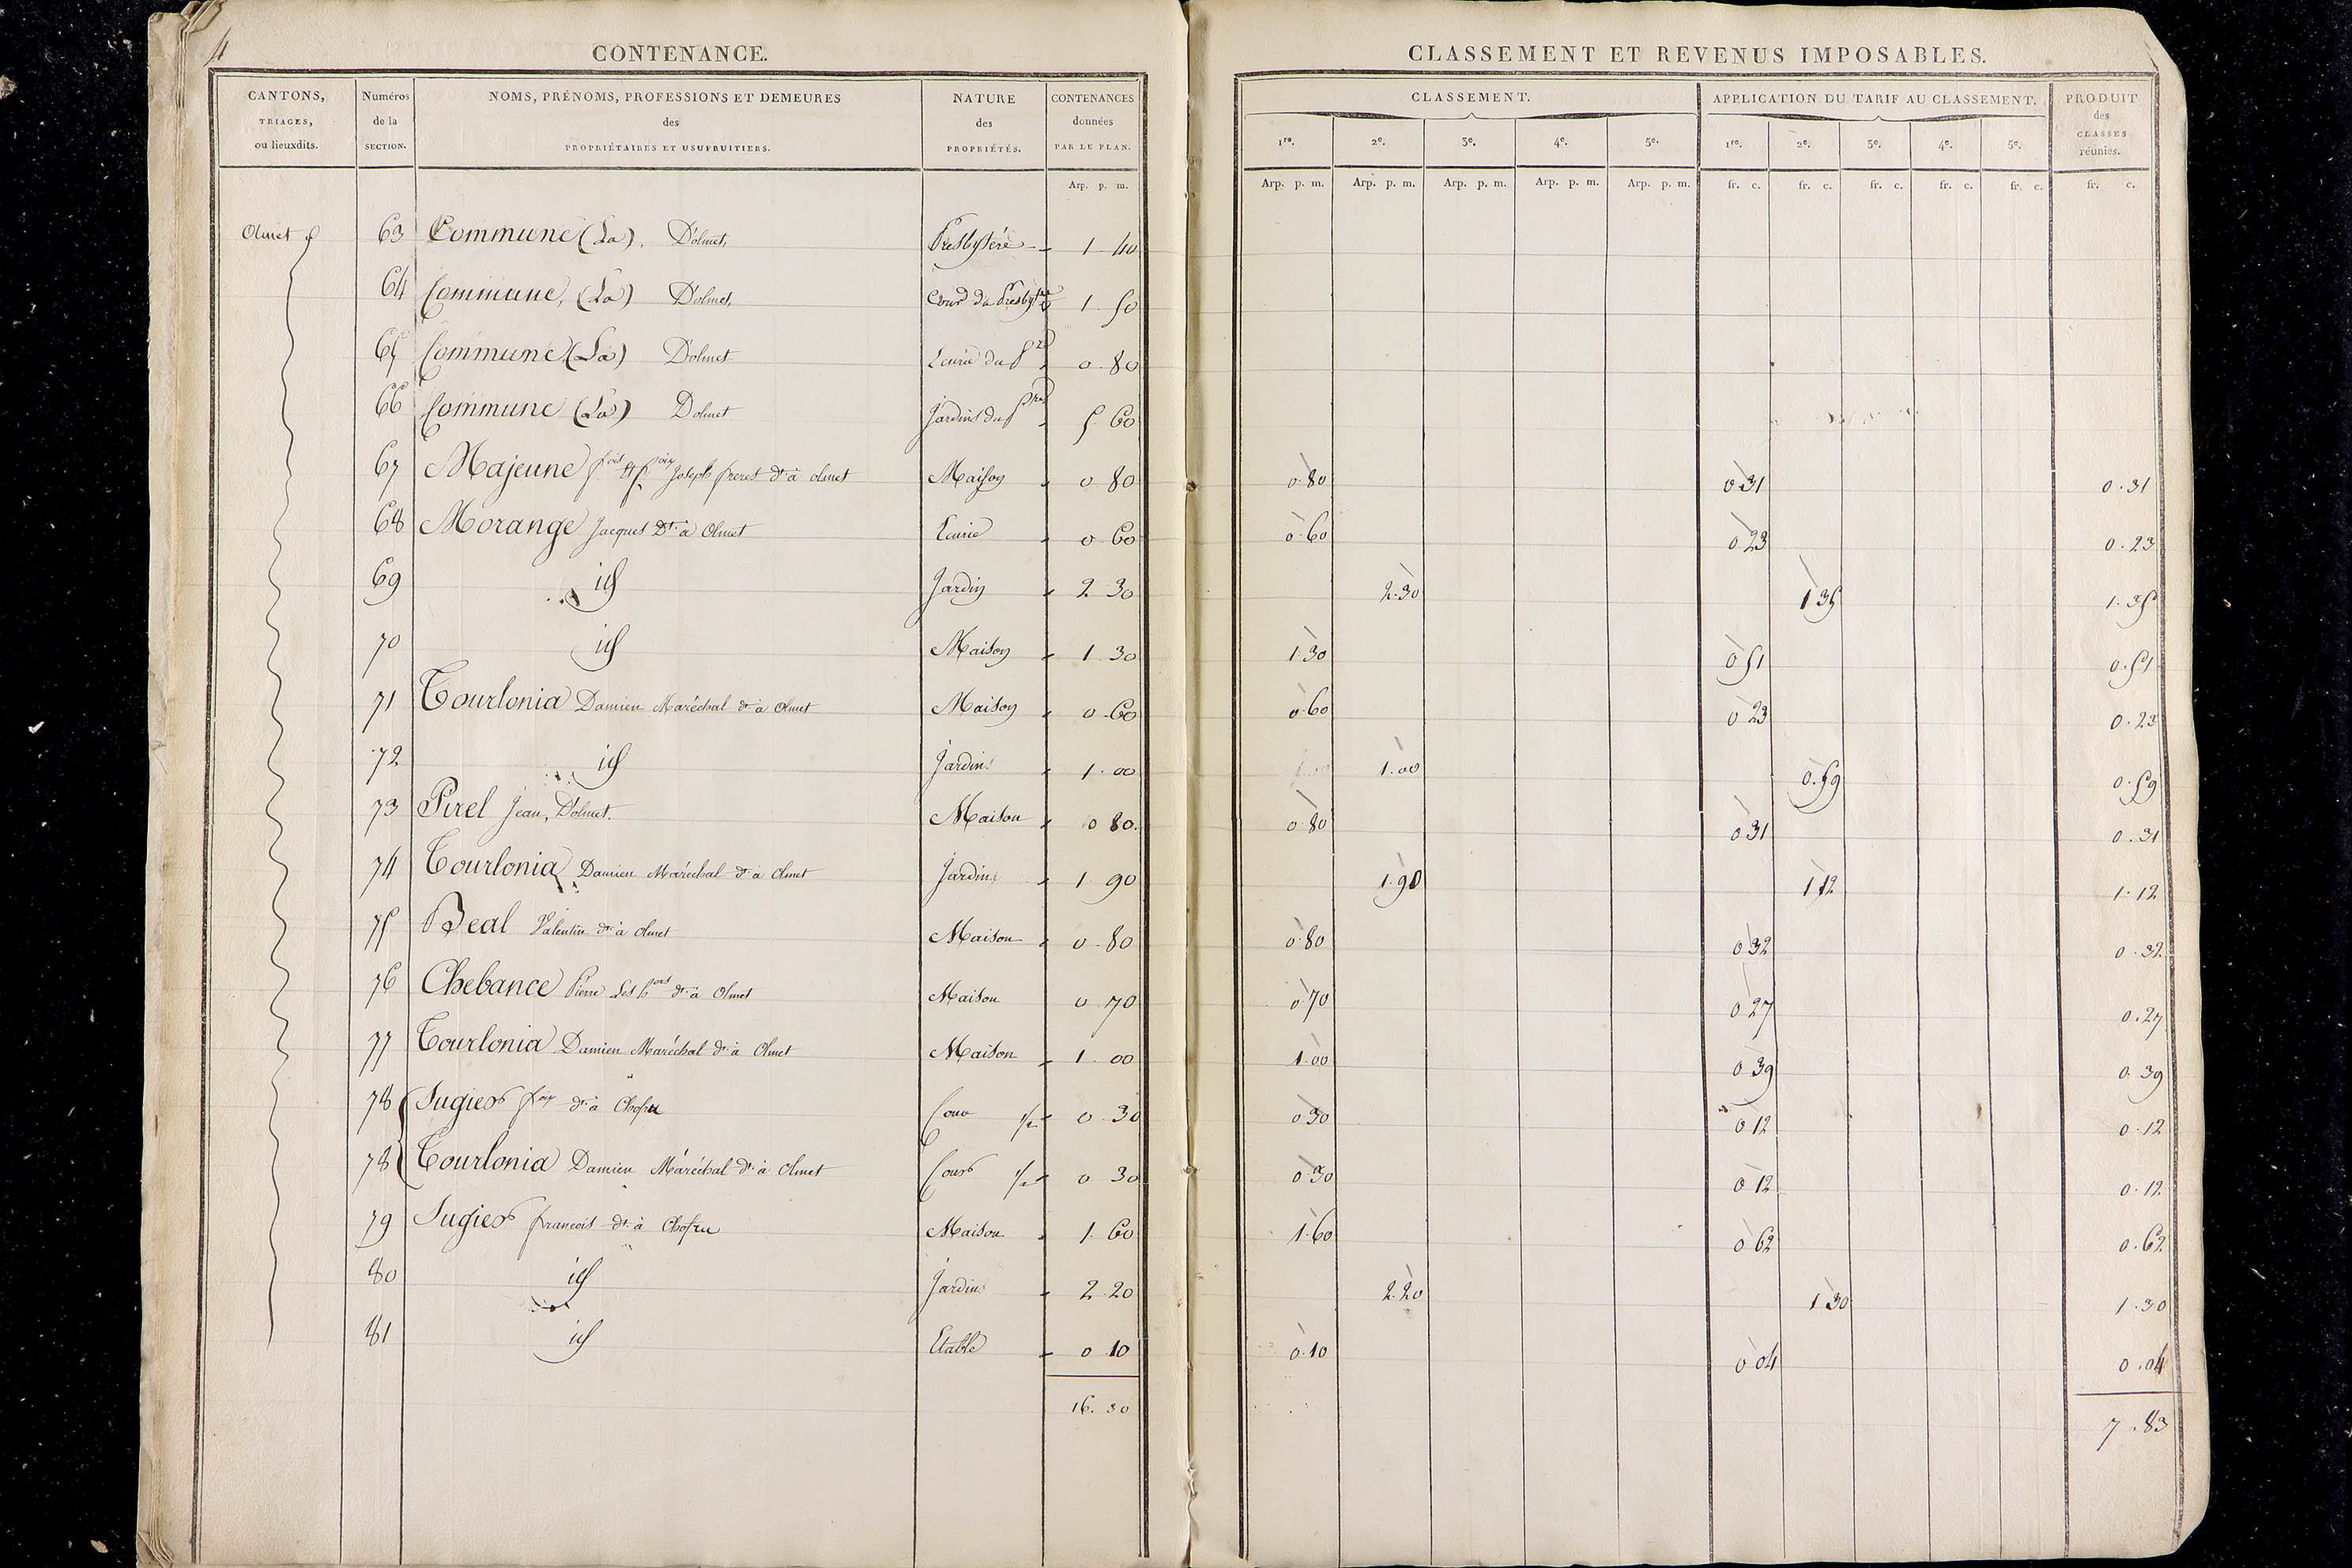 4
CONTENANCE.
CLASSEMENT ET REVENUS IMPOSABLES.
CANTONS, TRIAGES, ou lieuxdits.
Numéros de la SECTION.
NOMS, PRÉNOMS, PROFESSIONS ET DEMEURES des PROPRIÉTAIRES ET USUFRUITIERS.
NATURE des PROPRIÉTÉS.
CONTENANCES données PAR LE PLAN.
CLASSEMENT.
APPLICATION DU TARIF AU CLASSEMENT.
PRODUIT des CLASSES réunies.
1re. 2e. 3e. 4e. 5e. 1re. 2e. 3e. 4e. 5e.
Arp. p. m. Arp. p. m. Arp. p. m. Arp. p. m. Arp. p. m. Arp. p. m. fr. c. fr. c. fr. c. fr. c. fr. c. fr. c.
Olmet 63 Commune (La). D'olmet, Presbytère 1 40
64 Commune, (La) D'olmet, Cour du Presbytre 1 50
65 Commune (La) D'olmet Ecurie du 0 80
66 Commune (La) Dolmet Jardins du 5 60
67 Majeune fois et Joseph freres dt à olmet Maison 0 80 0.80 0 31 0.31
68 Morange Jacques Dt à Olmet Ecurie 0 60 0.60 0 23 0.23
69 id Jardin 2 30 2.30 1 35 1.35
70 id Maison 1 30 1 30 0 51 0.51
71 Tourlonia Damien Maréchal dt à Olmet Maison 0 60 0 60 0 23 0.23
72 id Jardin 1.00 1.00 0.59 0.59
73 Pirel Jean, D'olmet. Maison 0 80. 0 80 0 31 0.31
74 Tourlonia Damien Maréchal dt à Olmet Jardin 1 90 1.90 1 12 1.12
75 Beal Valentin dt à olmet Maison 0 80 0.80 0 32 0.32
76 Chebance Pierre Les dt à Olmet Maison 0 70 0 70 0 27 0.27
77 Tourlonia Damien Maréchal dt à Olmet Maison 1 00 1.00 0 39 0.39
78 Sugier foix dt à Cour 1/2 0 30 0 30 0 12 0.12
78 Tourlonia Damien Maréchal dt à Olmet Cour 1/2 0 30 0 30 0 12 0.12
79 Sugier francois dt à Maison 1 60 1.60 0 62 0.62
80 id Jardin 2 20 2.20 1 30 1.30
81 id Etable 0 10 0.10 0 04 0.04
16. 30
7.83